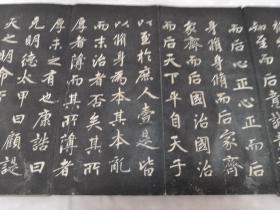 知至而后意誠意
而后心正心正而后
身脩身脩而后家齊
家齊而后國治國治
而后天下平自天子
以至於庶人壹是皆
以脩身為本其本亂
而末治者否矣其所
厚者薄而其所薄者
厚未之有也康誥曰
克明德太甲曰顧諟
天之明命